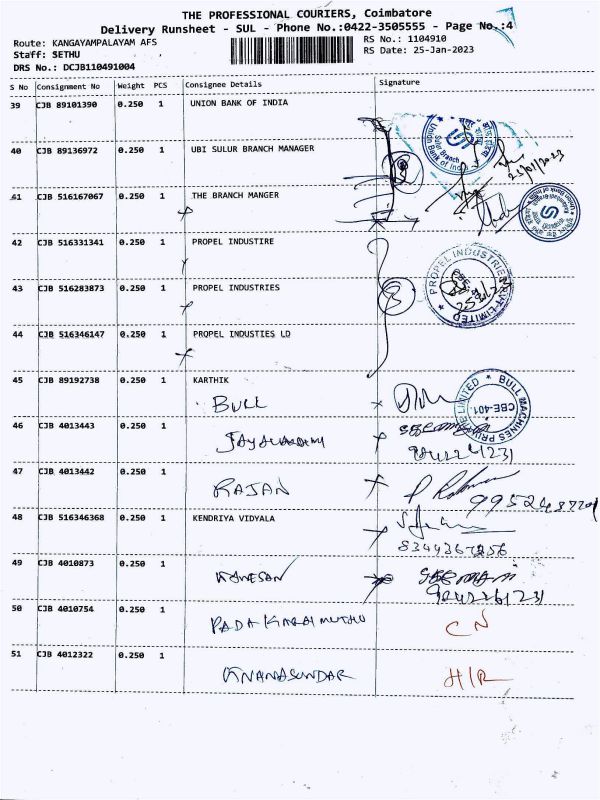 THE PROFESSIONAL COURIERS, Coimbatore
Delivery Runsheet - SUL - Phone No.:0422-3505555 - Page No.:4
Route: KANGAYAMPALAYAM AFS
RS No.: 1104910
Staff: SETHU
RS Date: 25-Jan-2023
DRS No.: DCJB110491004
S No Consignment No Weight PCS Consignee Details Signature
39 CJB 89101390 0.250 1 UNION BANK OF INDIA
40 CJB 89136972 0.250 1 UBI SULUR BRANCH MANAGER
Union Bank of India
Sulur Branch
25/01/2023
41 CJB 516167067 0.250 1 THE BRANCH MANGER
42 CJB 516331341 0.250 1 PROPEL INDUSTIRE
43 CJB 516283873 0.250 1 PROPEL INDUSTRIES
PROPEL INDUSTRIES PVT. LIMITED
44 CJB 516346147 0.250 1 PROPEL INDUSTIES LD
45 CJB 89192738 0.250 1 KARTHIK
BULL
BULL MACHINES PRIVATE LIMITED
CBE-401.
46 CJB 4013443 0.250 1
47 CJB 4013442 0.250 1
RAJAN
48 CJB 516346368 0.250 1 KENDRIYA VIDYALA
49 CJB 4010873 0.250 1
50 CJB 4010754 0.250 1
CN
51 CJB 4012322 0.250 1
KNANASUNDAR
H/R